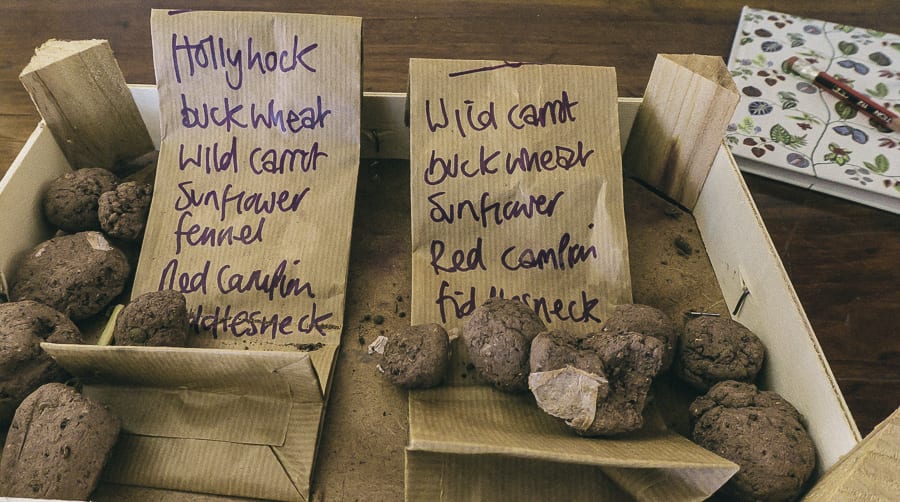 Hollyhock
buckwheat
wild carrot
Sunflower
fennel
Red Campion
Wild carrot
buckwheat
Sunflower
Red campion